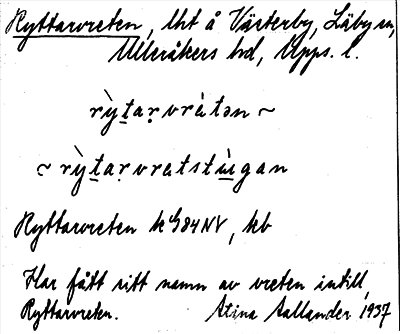 Ryttarvreten, lht å Västerby, Läby sn,
Ulleråkers hd, Upps. l.
rỳtạrvrátən ~
~ rỳtạrvratstù̱gan
Ryttarvreten k G84NV, kb
Har fått sitt namn av vreten intill,
Ryttarvreten. Stina Sallander 1937